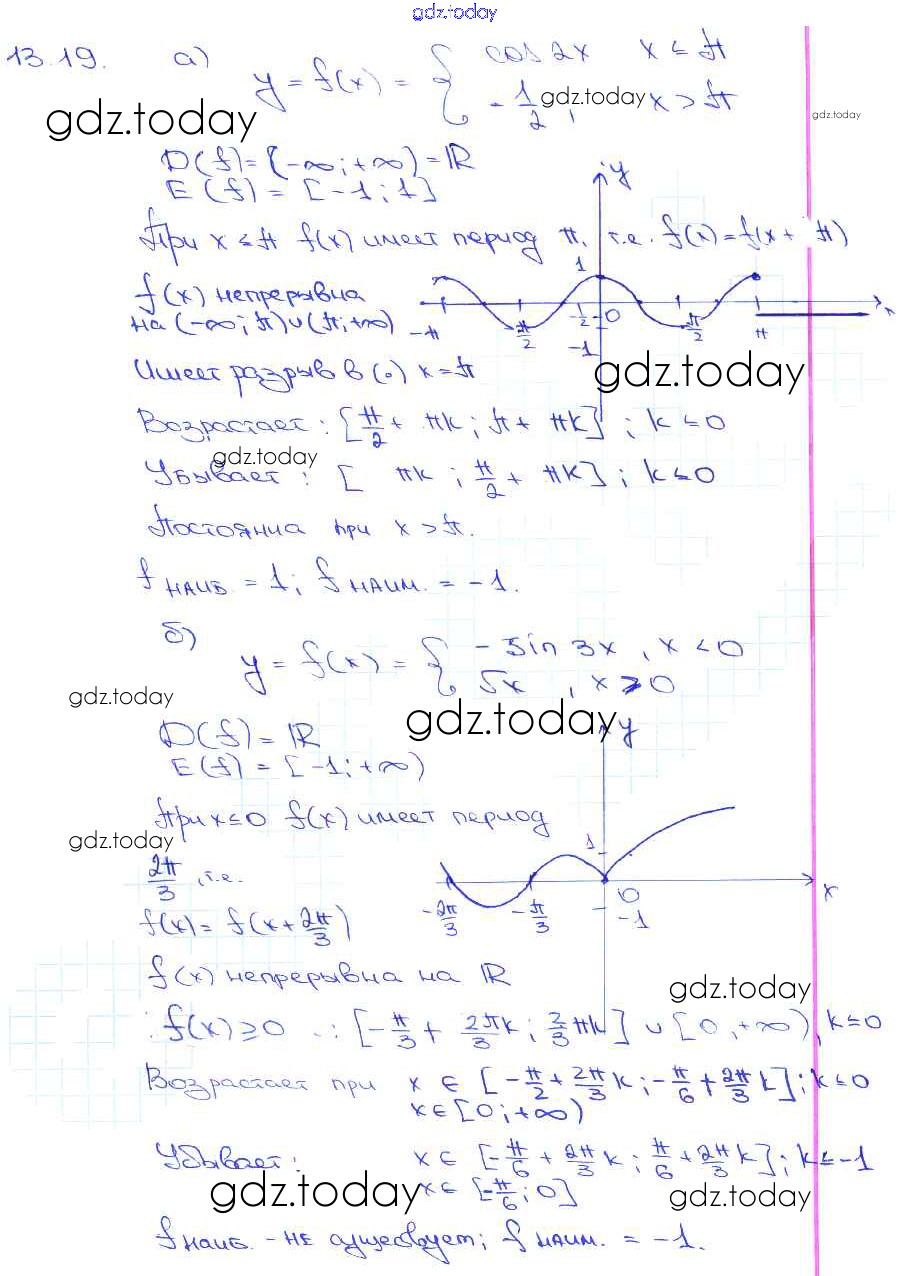 gdz.today
13.19. а) y = f(x) = { cos 2x x ≤ π
-1/2, x > π
gdz.today
gdz.today
gdz.today
D(f) = (-∞; +∞) = ℝ
E(f) = [-1; 1]
При x ≤ π f(x) имеет период π, т.е. f(x) = f(x + π)
f(x) непрерывна
на (-∞; π) ∪ (π; +∞)
y
1
-1/2
0
-1
-π
-π/2
π/2
π
x
Имеет разрыв в (·) x = π
gdz.today
Возрастает: [π/2 + πk; π + πk]; k ≤ 0
gdz.today
Убывает: [πk; π/2 + πk]; k ≤ 0
Постоянна при x > π.
f НАИБ. = 1; f НАИМ. = -1.
б) y = f(x) = { -sin 3x, x < 0
√x, x ≥ 0
gdz.today
gdz.today
D(f) = ℝ
E(f) = [-1; +∞)
При x ≤ 0 f(x) имеет период
gdz.today
2π/3, т.е.
f(x) = f(x + 2π/3)
y
1
0
-1
-2π/3
-π/3
x
f(x) непрерывна на ℝ
gdz.today
f(x) ≥ 0 ∴ [-π/3 + 2πk/3; 2/3 πk] ∪ [0, +∞), k ≤ 0
Возрастает при x ∈ [-π/2 + 2π/3 k; -π/6 + 2π/3 k]; k ≤ 0
x ∈ [0; +∞)
Убывает: x ∈ [-π/6 + 2π/3 k; π/6 + 2π/3 k]; k ≤ -1
x ∈ [-π/6; 0]
gdz.today
gdz.today
f НАИБ. - не существует; f НАИМ. = -1.